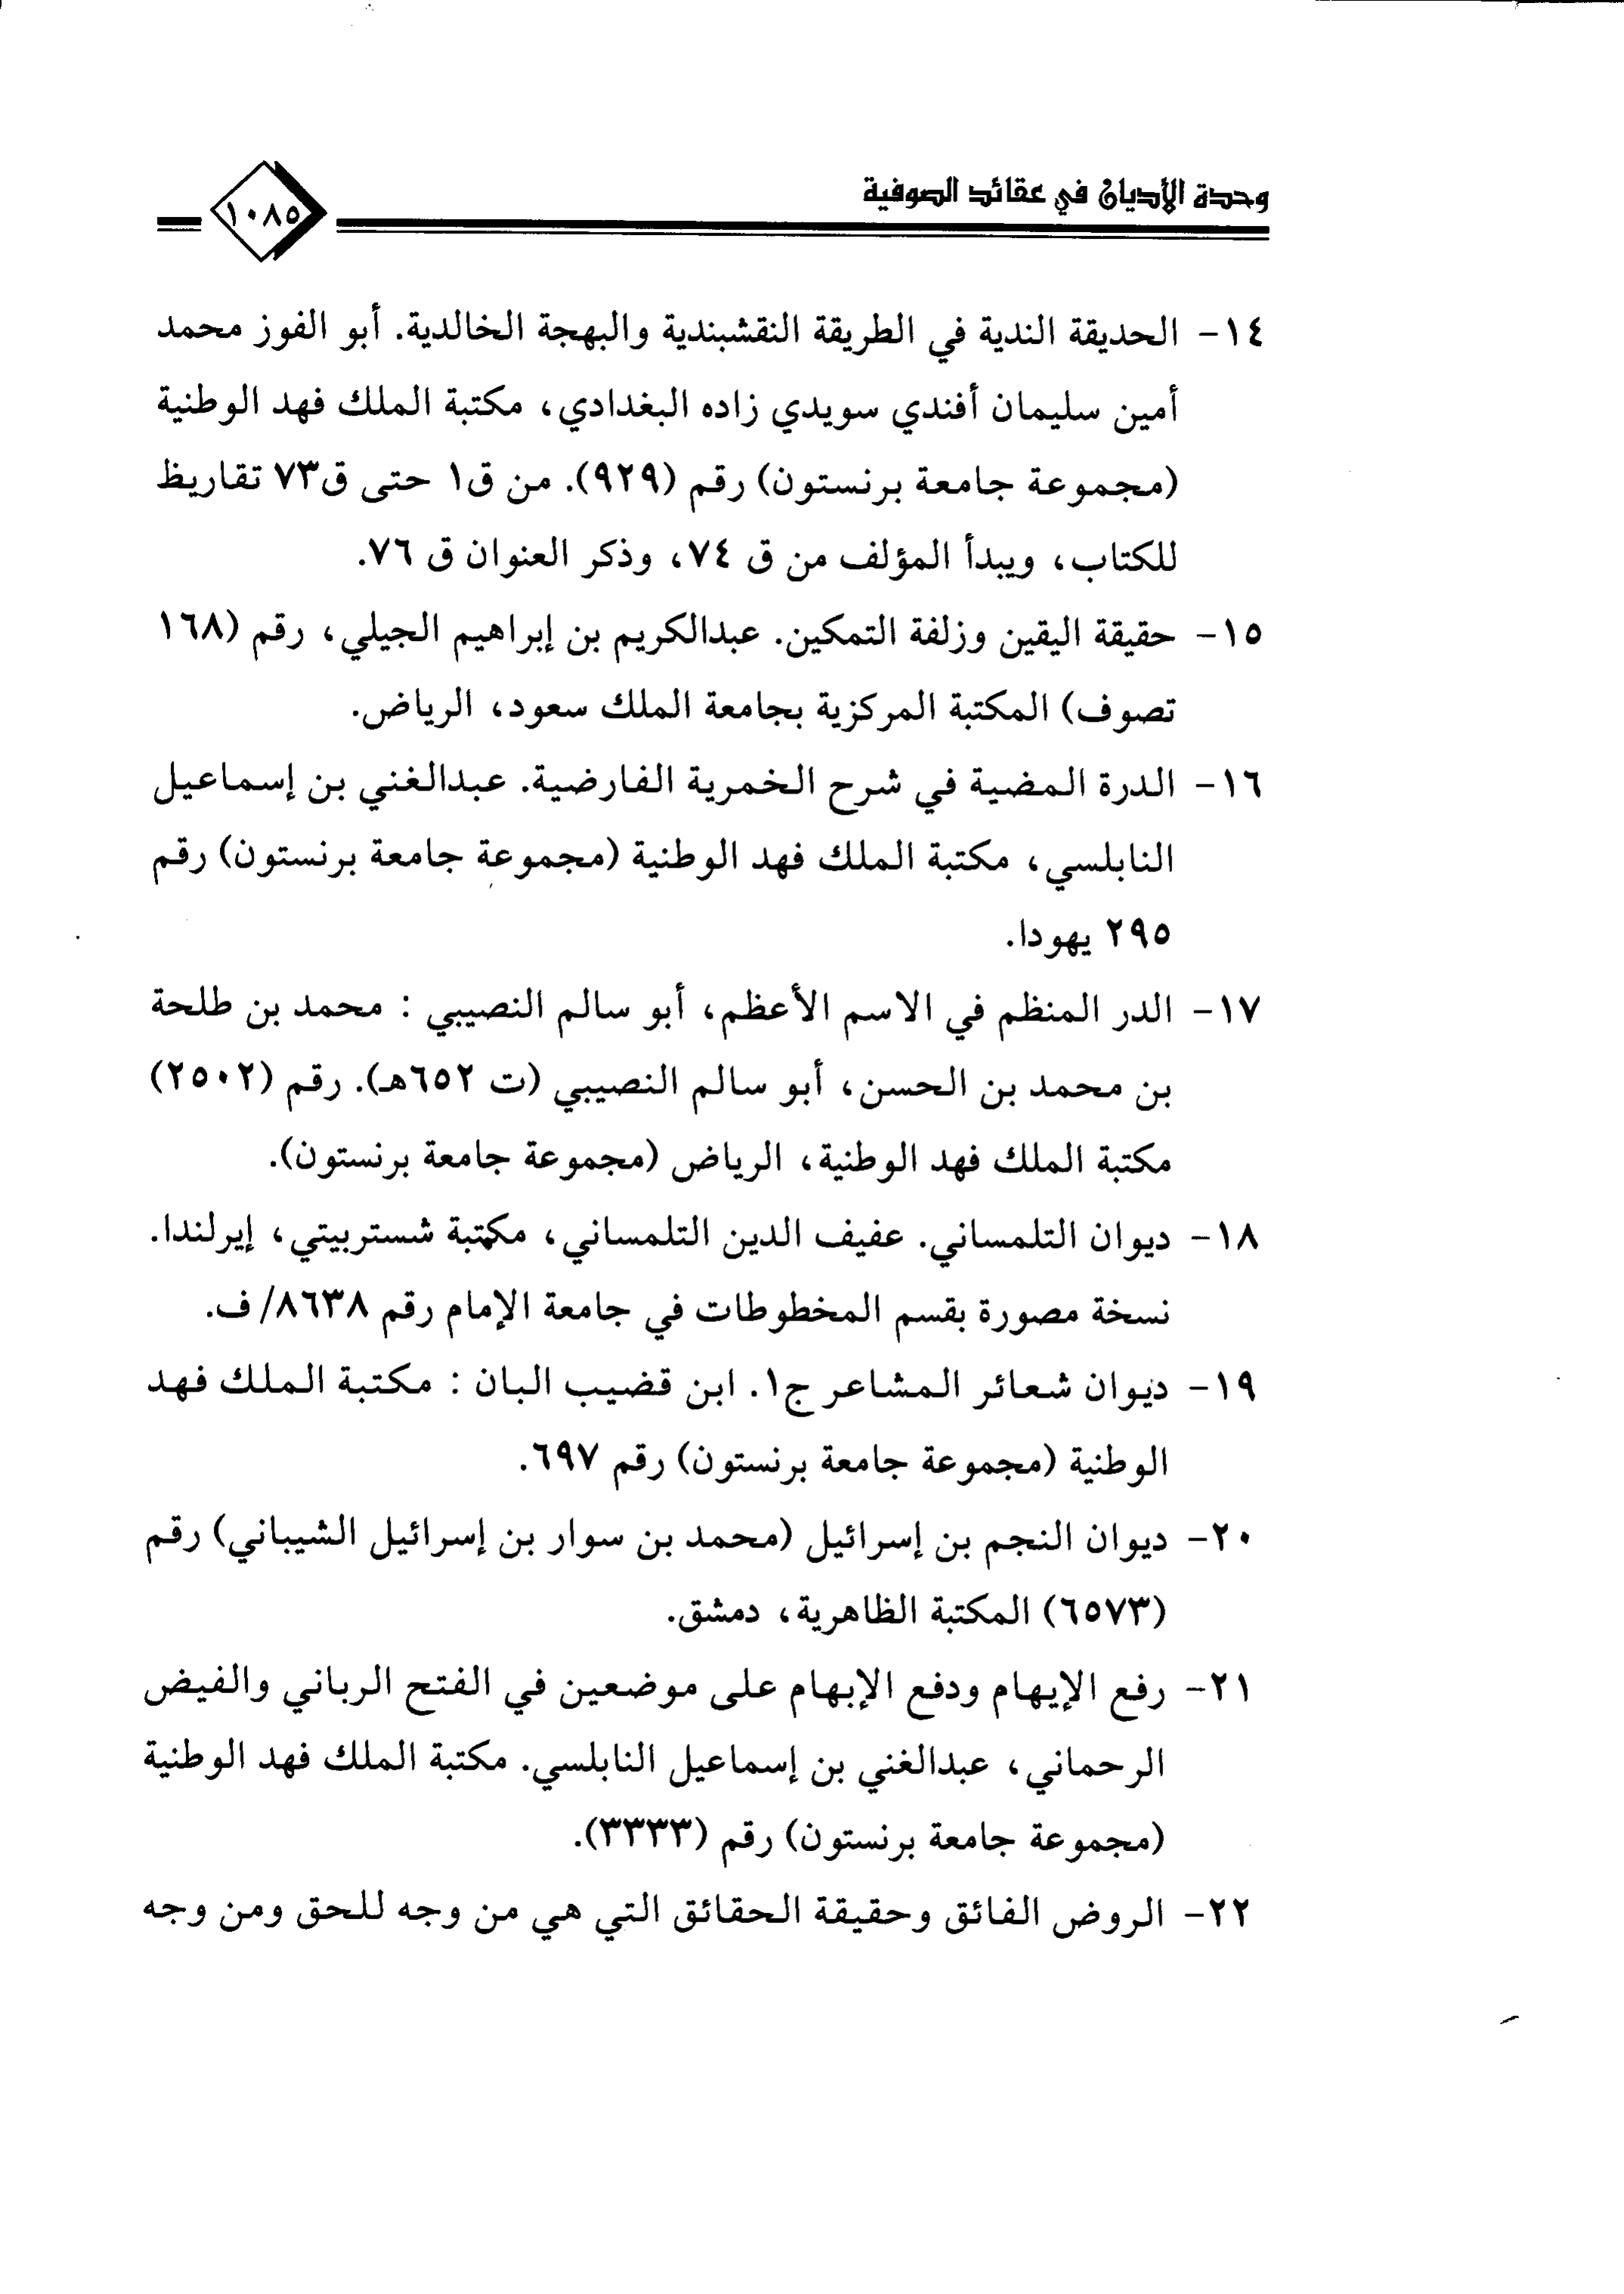 وحدة الأديان في عقائد الصوفية
١٠٨٥
١٤- الحديقة الندية في الطريقة النقشبندية والبهجة الخالدية. أبو الفوز محمد
أمين سليمان أفندي سويدي زاده البغدادي، مكتبة الملك فهد الوطنية
(مجموعة جامعة برنستون) رقم (٩٢٩). من ق١ حتى ق٧٣ تقاريظ
للكتاب، ويبدأ المؤلف من ق ٧٤، وذكر العنوان ق ٧٦.
١٥- حقيقة اليقين وزلفة التمكين. عبدالكريم بن إبراهيم الجيلي، رقم (١٦٨
تصوف) المكتبة المركزية بجامعة الملك سعود، الرياض.
١٦- الدرة المضية في شرح الخمرية الفارضية. عبدالغني بن إسماعيل
النابلسي، مكتبة الملك فهد الوطنية (مجموعة جامعة برنستون) رقم
٢٩٥ يهودا.
١٧- الدر المنظم في الاسم الأعظم، أبو سالم النصيبي : محمد بن طلحة
بن محمد بن الحسن، أبو سالم النصيبي (ت ٦٥٢هـ). رقم (٢٥٠٢)
مكتبة الملك فهد الوطنية، الرياض (مجموعة جامعة برنستون).
١٨- ديوان التلمساني. عفيف الدين التلمساني، مكتبة شستربيتي، إيرلندا.
نسخة مصورة بقسم المخطوطات في جامعة الإمام رقم ٨٦٣٨/ ف.
١٩- ديوان شعائر المشاعر ج١. ابن قضيب البان : مكتبة الملك فهد
الوطنية (مجموعة جامعة برنستون) رقم ٦٩٧.
٢٠- ديوان النجم بن إسرائيل (محمد بن سوار بن إسرائيل الشيباني) رقم
(٦٥٧٣) المكتبة الظاهرية، دمشق.
٢١- رفع الإيهام ودفع الإبهام على موضعين في الفتح الرباني والفيض
الرحماني، عبدالغني بن إسماعيل النابلسي. مكتبة الملك فهد الوطنية
(مجموعة جامعة برنستون) رقم (٣٣٣٣).
٢٢- الروض الفائق وحقيقة الحقائق التي هي من وجه للحق ومن وجه